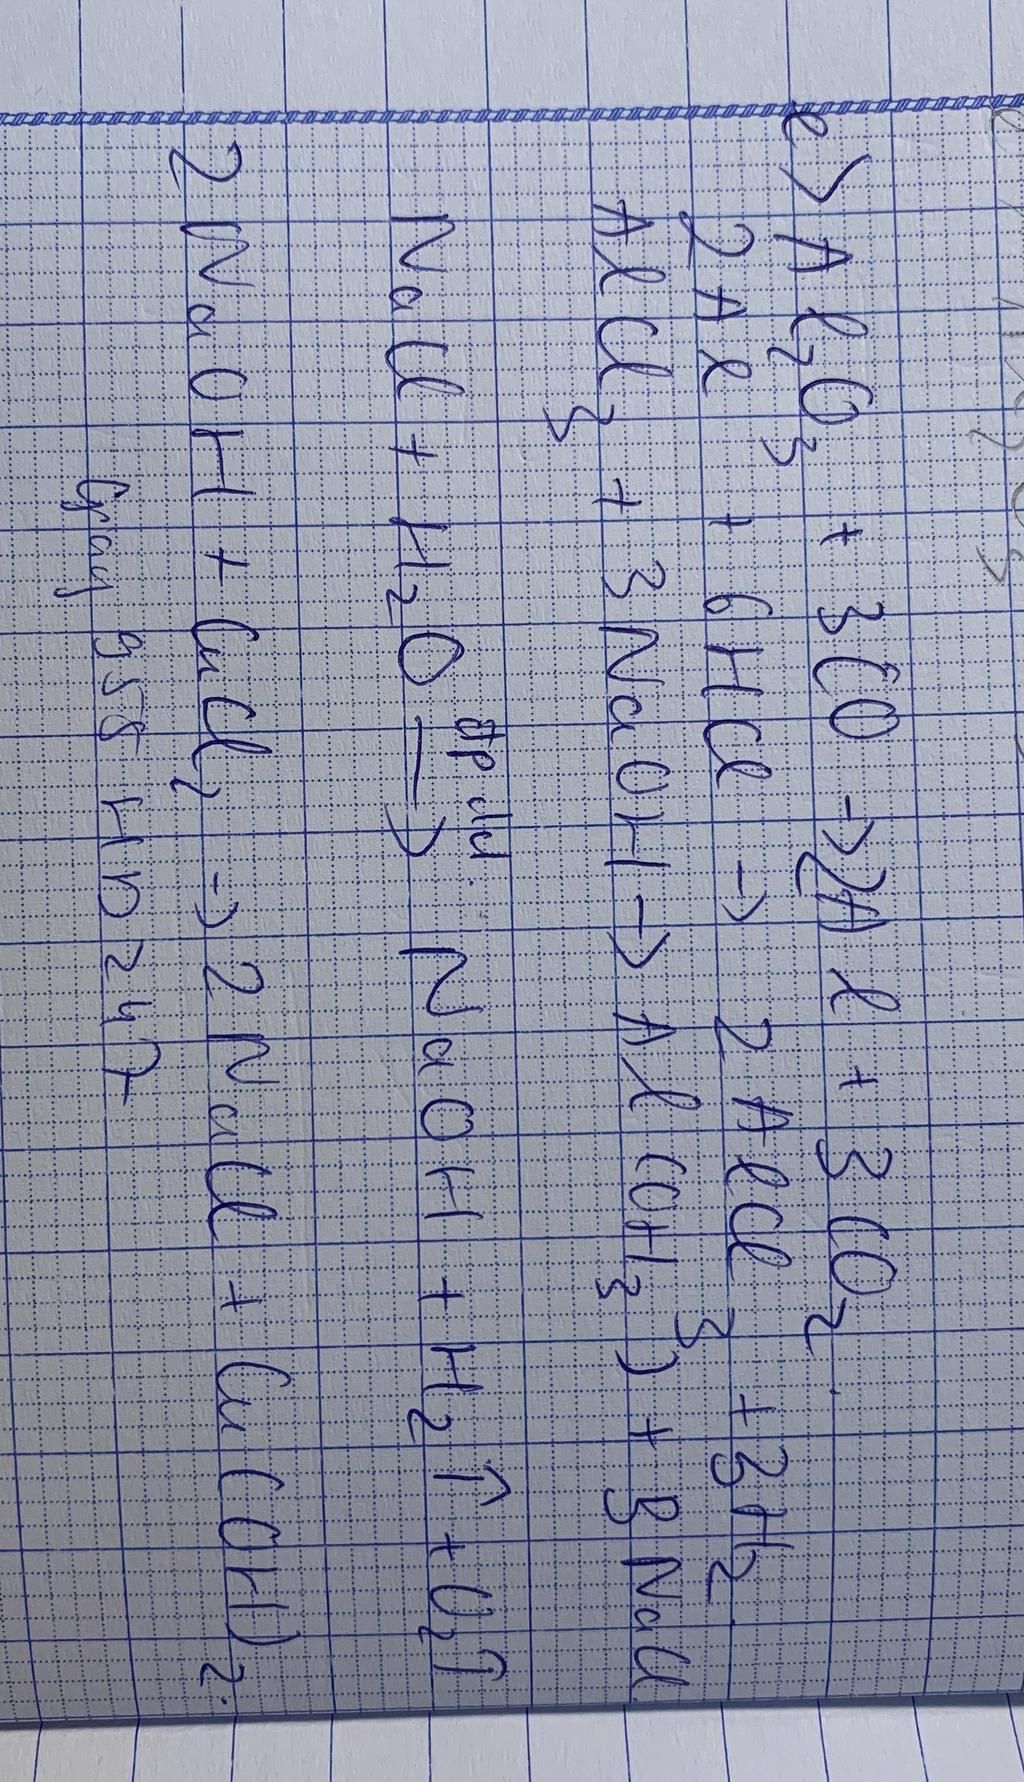 e> Al₂O₃ + 3CO → 2Al + 3CO₂
2Al + 6HCl → 2AlCl₃ + 3H₂
AlCl₃ + 3NaOH → Al(OH₃) + 3NaCl
NaCl + H₂O đp → NaOH + H₂↑ + Cl₂↑
2NaOH + CuCl₂ → 2NaCl + Cu(OH)₂.
HD 247